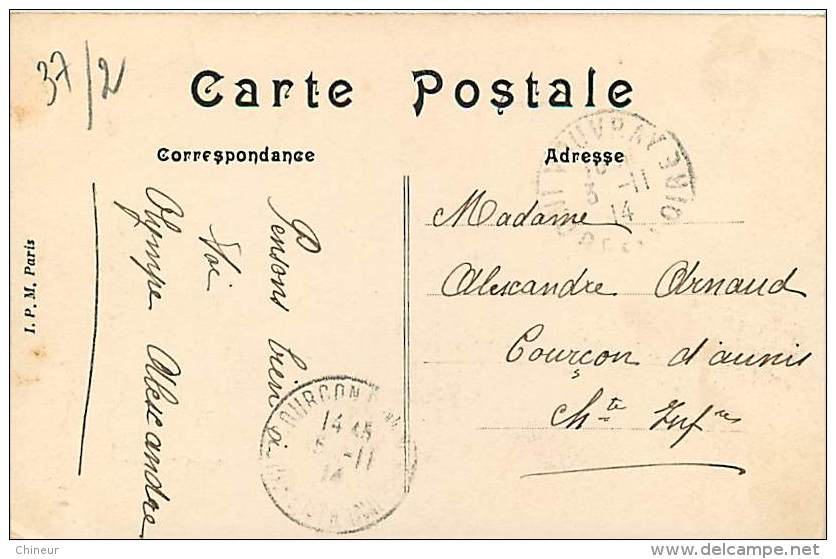 37/2
Carte Postale
Correspondance
Adresse
Pensons bien à
toi
Olympe Alexandre
Madame
Alexandre Arnaud
Courçon d'aunis
Ch te Inf res
I. P. M. Paris
14 45
5 -11
14
3 -11
14
Chineur
delcampe.net